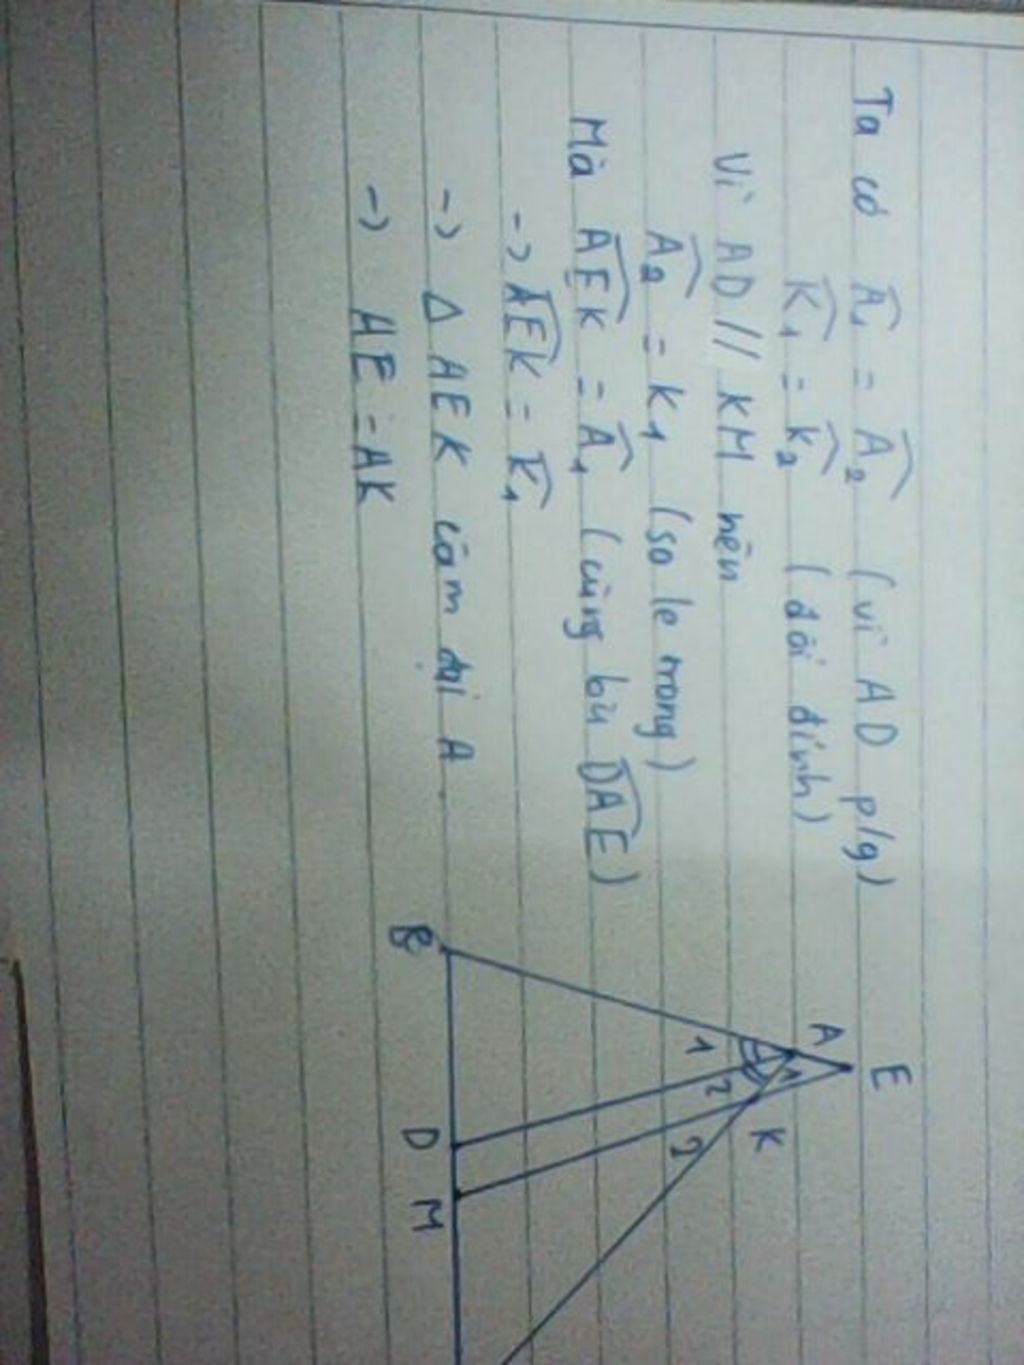 Ta có Â₁ = Â₂ (vì AD p/g)
K̂₁ = K̂₂ (đối đỉnh)
Vì AD // KM nên
Â₂ = K₁ (so le trong)
Mà AEK = Â₁ (cùng bù DAE)
-> AEK = K̂₁
-> Δ AEK cân tại A
-> AE = AK
E
A
1
1
2
K
2
B
D
M